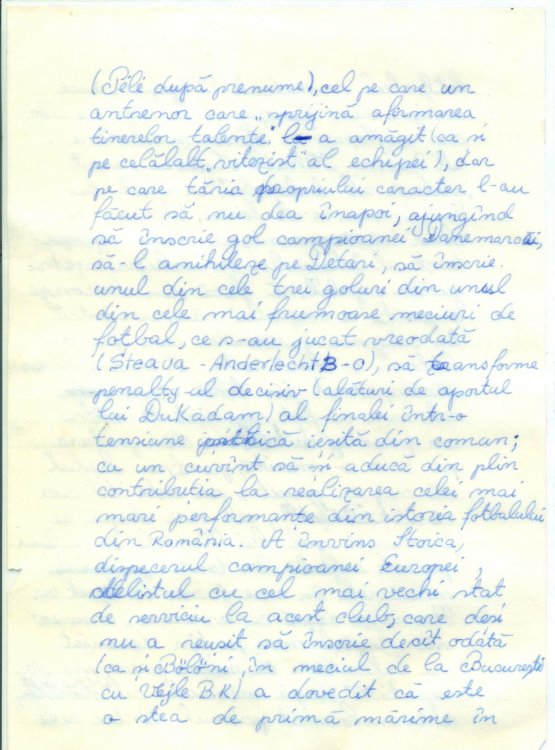 (Péle după prenume), cel pe care un
antrenor care „sprijină afirmarea
tinerelor talente", l-a amăgit (ca și
pe celălalt „vitezist" al echipei), dar
pe care tăria propriului caracter l-au
făcut să nu dea înapoi, ajungînd
să înscrie gol campioanei Danemarcei,
să-l anihileze pe Detari, să înscrie
unul din cele trei goluri din unul
din cele mai frumoase meciuri de
fotbal, ce s-au jucat vreodată
(Steaua - Anderlecht 3-0), să transforme
penalty-ul decisiv (alături de aportul
lui Dukadam) al finalei într-o
tensiune ieșită din comun;
cu un cuvînt să-și aducă din plin
contribuția la realizarea celei mai
mari performanțe din istoria fotbalului
din România. A învins Stoica,
dispecerul campioanei Europei,
stelistul cu cel mai vechi stat
de serviciu la acest club, care deși
nu a reușit să înscrie decît odată
(ca și Bölöni, în meciul de la București
cu Vejle B.K) a dovedit că este
o stea de primă mărime în